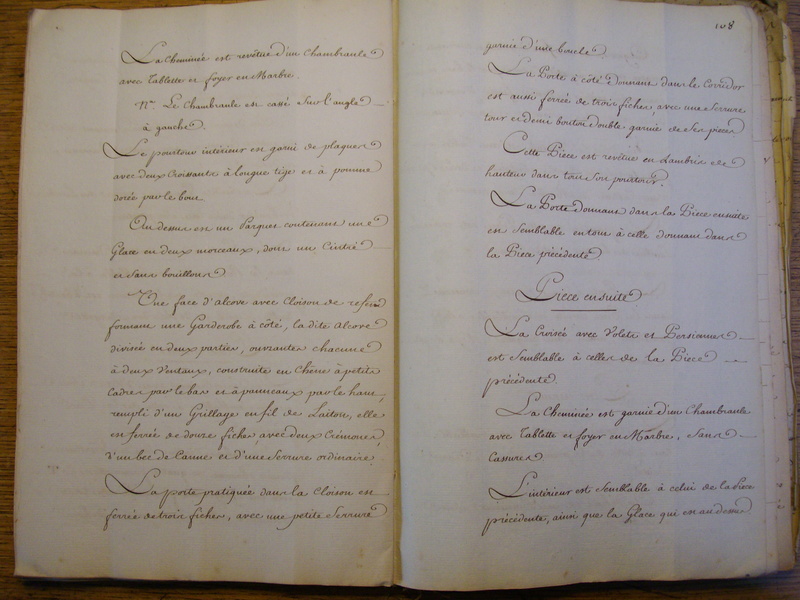 La Cheminée est revêtue d'un Chambranle
avec Tablette et foyer en Marbre.
Nta Le Chambranle est cassé sur l'angle
à gauche.
Le pourtour intérieur est garni de plaques
avec deux Croissants à longue tige et à pomme
dorée par le bout
Au dessus est un Parquet contenant une
Glace en deux morceaux, dont un Cintré
et sans bouillons
Une face d'alcove avec Cloison de refend
formant une Garderobe à côté, la dite alcove
divisée en deux parties, ouvrantes chacune
à deux Ventaux, construite en Chêne à petits
Cadres par le bas et à panneaux par le haut,
rempli d'un Grillage en fil de Laiton, elle
est ferrée de douze fiches avec deux Crémones,
d'un bec de Canne et d'une Serrure ordinaire
La porte pratiquée dans la Cloison est
ferrée de trois fiches, avec une petite Serrure
108
garnie d'une boucle.
La Porte à côté donnant dans le Corridor
est aussi ferrée de trois fiches, avec une Serrure
tour et demi bouton double, garnie de ses pieces
Cette Piece est revêtue en Lambris de
hauteur dans tout son pourtour.
La Porte donnant dans la Piece ensuite
est Semblable en tout à celle donnant dans
la Piece précédente
Piece ensuite
La Croisée avec Volets et Persiennes
est Semblable à celles de la Piece
précédente.
La Cheminée est garnie d'un Chambranle
avec Tablette et foyer en Marbre, sans
Cassures
L'intérieur est Semblable à celui de la Piece
précédente, ainsi que la Glace qui est au dessus